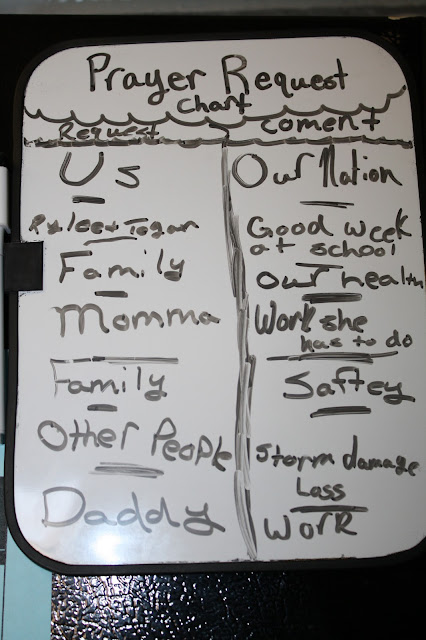 Prayer Request
Chart
Request Coment
Us Our Nation
Good week
at school
Family Our health
Momma Work she
has to do
Family Saftey
Other People Storm damage
Loss
Daddy Work